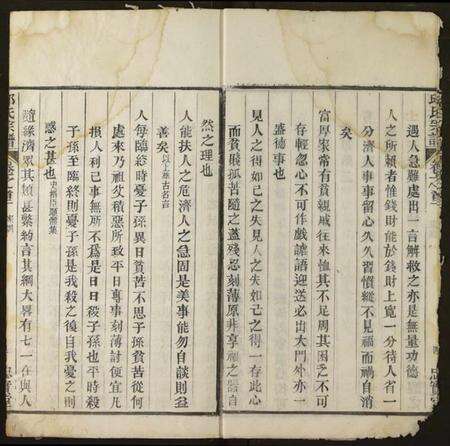 遇人急難處出一言解救之亦是無量功德
人之所賴者惟錢財能於錢財上寬一分待人省一
分濟人事事留心久久習慣縱不見福而禍自消
矣
富厚家常有貧親戚往來恤其不足周其困乏不可
存輕忽心不可作戲謔語迎送必出大門外亦一
盛德事也
見人之得如己之失見人之失如己之得一存此心
而貧賤孤苦隨之蓋殘忍刻薄原非享福之器自
然之理也
人能扶人之危濟人之急固是美事能勿自談則益
善矣以上集古名言
人每臨終時憂子孫異日貧苦不思子孫貧苦從何
處來乃祖父積惡所致平日專事刻薄討便宜凡
損人利己事無所不爲是日日殺子孫也平時殺
子孫至臨終則憂子孫是我殺之復自我憂之則
惑之甚也
隨緣濟眾其類甚繁約言其綱大畧有七一在與人
邱氏宗譜 卷之首